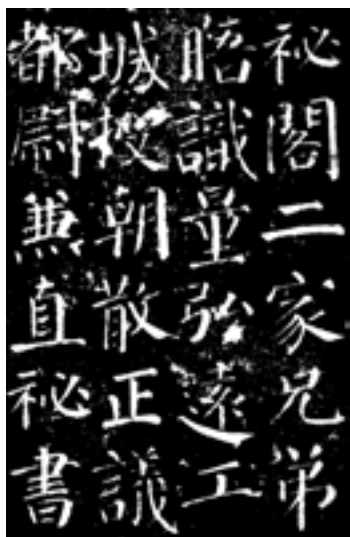 祕閣二家兄弟
晤識量弘遠工
城授朝散正議
都尉兼直祕書